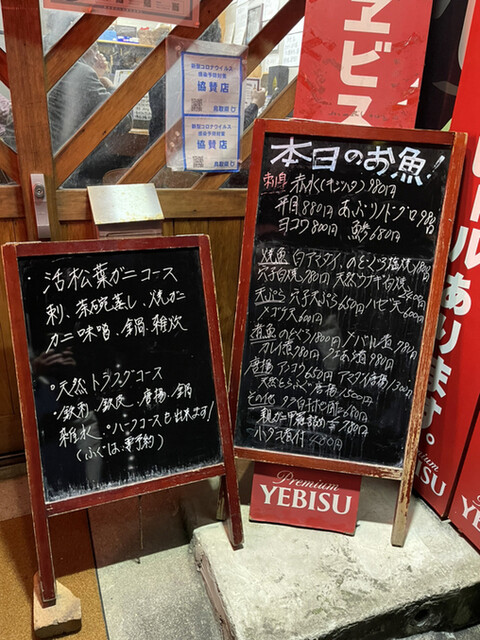 新型コロナウイルス
感染予防対策
協賛店
鳥取県
新型コロナウイルス
感染予防対策
協賛店
鳥取県
ヱビス
本日のお魚!
刺身
平目 880円 あぶりノドグロ 980
ヨコワ 880円
680円
焼魚 白アマダイ、のどぐろ塩焼
穴子白焼 980円 天然ウナギ白焼
天ぷら 穴子天ぷら 650円 ハゼ天 600円
メゴチ天 600円
煮魚 のどぐろ 1800円
カレイ煮 780円
唐揚 アンコウ 650円 アマダイ唐揚
天然とらふぐ唐揚 1500円
その他
親ガニ甲羅詰め
・活松葉ガニコース
刺、茶碗蒸し、焼ガニ
カニ味噌、鍋、雑炊
天然トラフグコース
鉄刺、鉄皮、唐揚、鍋
雑炊 ハーフコースも出来ます!
(ふぐは要予約)
Premium
YEBISU
ルあります。
Premium
YEBISU